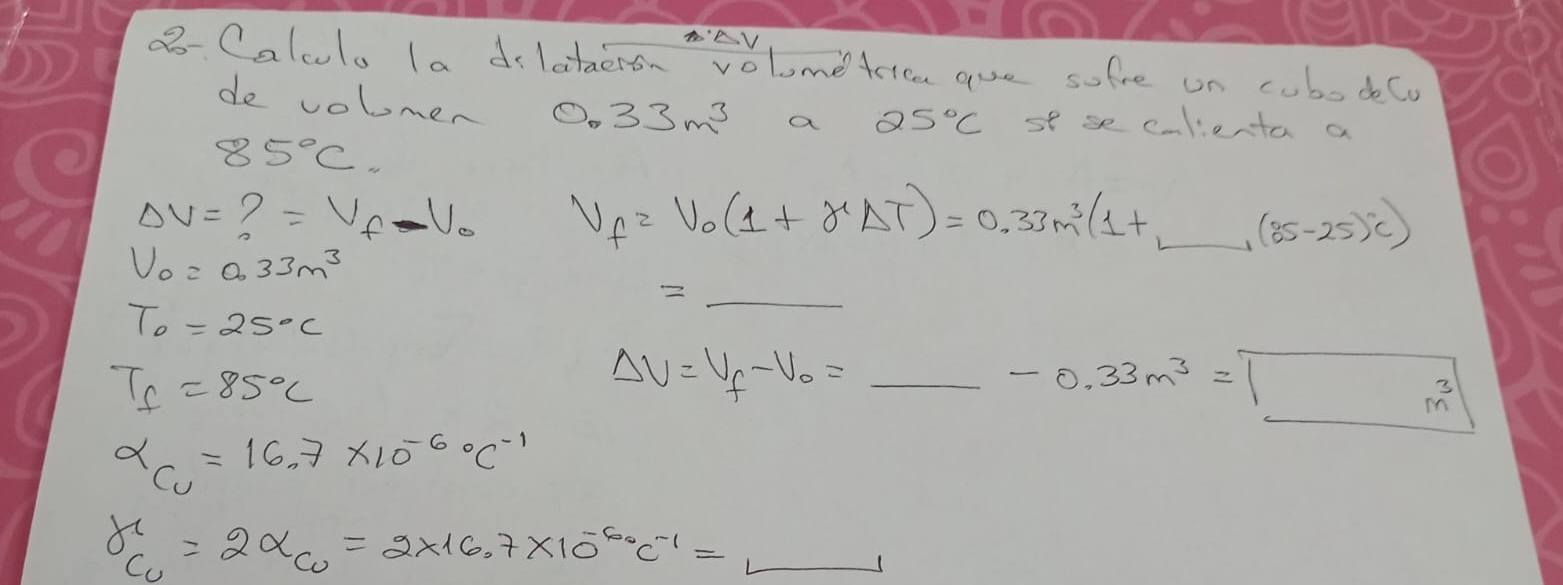 2.- Calcula la dilatación volumétrica que sufre un cubo de Cu
ΔV
de volumen 0.33m³ a 25°C si se calienta a
85°C.
ΔV = ? = Vf - V₀
Vf = V₀(1 + γΔT) = 0.33m³(1+ ____ (85-25)°C)
V₀ = 0.33m³
= ____
T₀ = 25°C
ΔV = Vf - V₀ = ____ - 0.33m³ = m³
Tf = 85°C
αCu = 16.7 ×10⁻⁶ °C⁻¹
γCu = 2αCu = 2×16.7×10⁻⁶ °C⁻¹ = ____